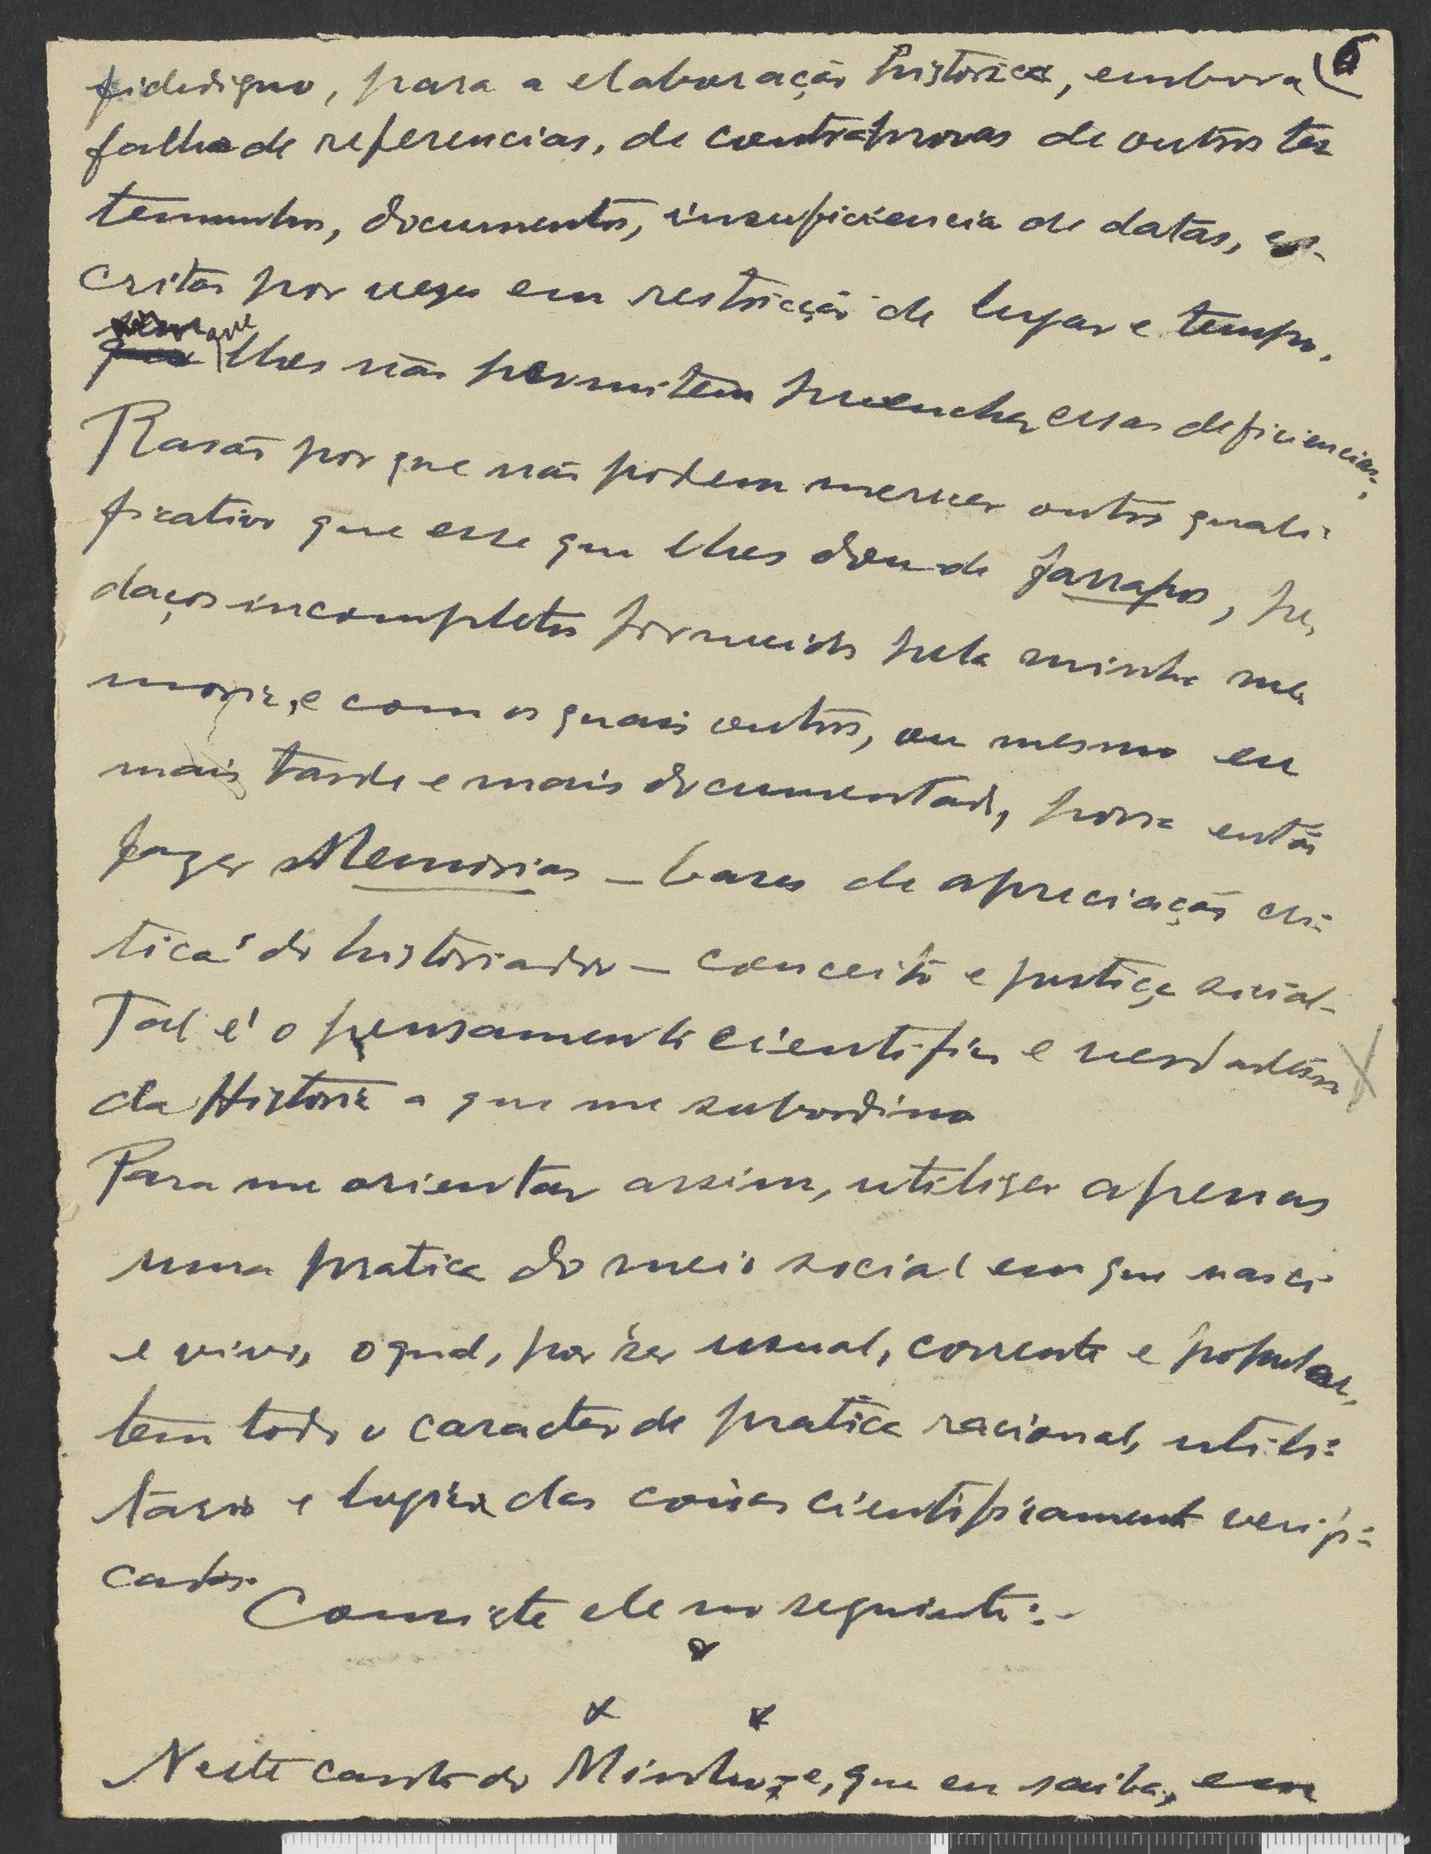 6
fidedigno, para a elaboração historica, embora
falha de referencias, de contraprovas de outros tes
temunhos, documentos, insuficiencia de datas, es-
critas por vezes em restricção de lugar e tempo,
que lhes não permitem preencher essas deficiencias;
Rasão por que não podem merecer outro quali-
ficativo que esse que lhes dou de farrapos, pe,
daços incompletos fornecidos pela minha me
moria, e com os quais outros, ou mesmo eu
mais tarde e mais documentado, possa então
fazer Memorias – bases de apreciação cri-
tica do historiador – conceito e justiça social-
Tal é o pensamento cientifico e verdadeiro
da Historia a que me subordino
Para me orientar assim, utilizei apenas
uma pratica do meio social em que nasci
e vivo, o qual, por ser usual, corrente e popular,
tem todo o caracter de pratica racional, utili-
tario e logico das coisas cientificamente verifi-
cados.
Consiste ele no seguinte:-
Neste canto do Minho, e, que eu saiba, em